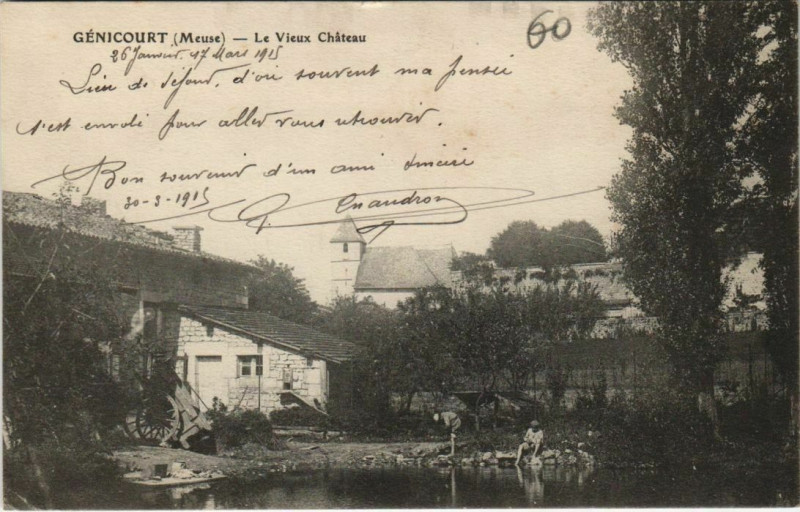 GÉNICOURT (Meuse) — Le Vieux Château
60
26 Janvier. 17 Mars 1915
Lieu de séjour, d'où souvent ma pensée
s'est envolé pour aller vous retrouver.
Bon souvenir d'un ami sincère
30-3-1915